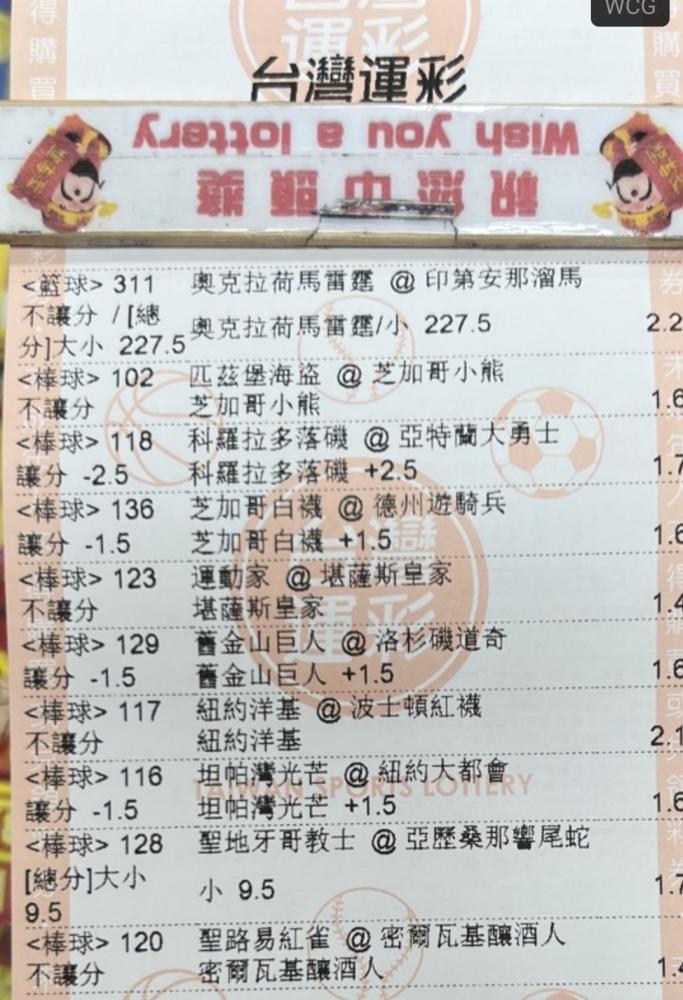 WCG
台灣運彩
Wish you a lottery
祝您中頭獎
<籃球> 311 奧克拉荷馬雷霆 @ 印第安那溜馬
不讓分 / [總
分]大小 227.5 奧克拉荷馬雷霆/小 227.5 2.2
<棒球> 102 匹茲堡海盜 @ 芝加哥小熊
不讓分 芝加哥小熊 1.6
<棒球> 118 科羅拉多落磯 @ 亞特蘭大勇士
讓分 -2.5 科羅拉多落磯 +2.5 1.7
<棒球> 136 芝加哥白襪 @ 德州遊騎兵
讓分 -1.5 芝加哥白襪 +1.5 1.6
<棒球> 123 運動家 @ 堪薩斯皇家
不讓分 堪薩斯皇家 1.4
<棒球> 129 舊金山巨人 @ 洛杉磯道奇
讓分 -1.5 舊金山巨人 +1.5 1.6
<棒球> 117 紐約洋基 @ 波士頓紅襪
不讓分 紐約洋基 2.1
<棒球> 116 坦帕灣光芒 @ 紐約大都會
TAIWAN SPORTS LOTTERY
讓分 -1.5 坦帕灣光芒 +1.5 1.6
<棒球> 128 聖地牙哥教士 @ 亞歷桑那響尾蛇
[總分]大小
9.5 小 9.5 1.7
<棒球> 120 聖路易紅雀 @ 密爾瓦基釀酒人
不讓分 密爾瓦基釀酒人 1.4